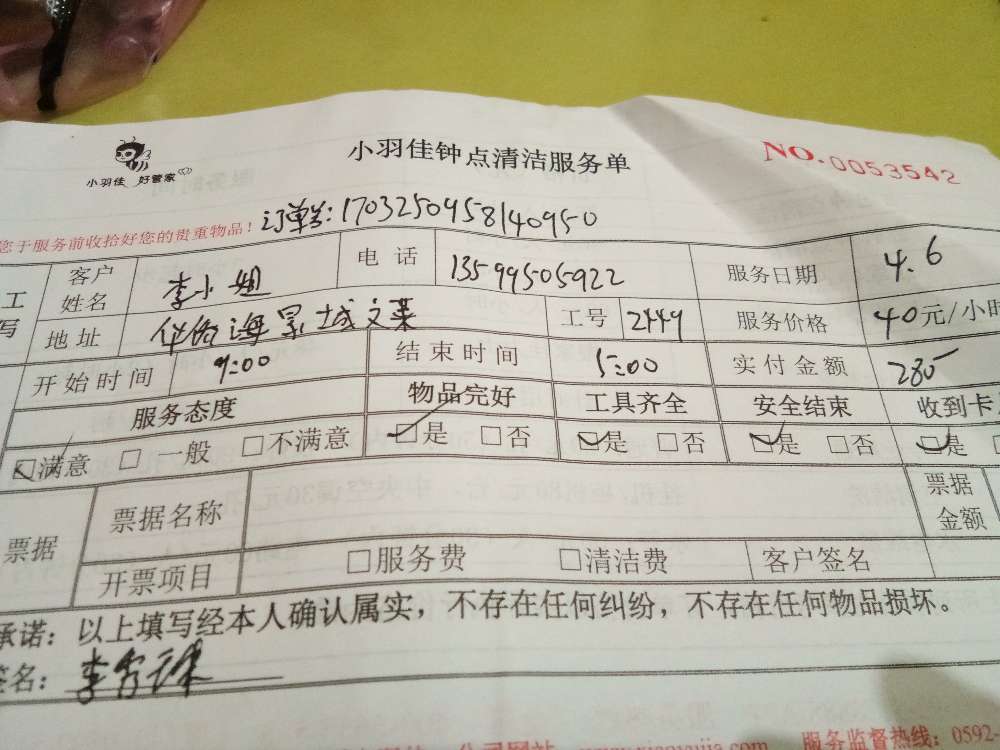 小羽佳 好管家
小羽佳钟点清洁服务单
NO.0053542
您于服务前收拾好您的贵重物品!
订单号:1703250958140950
工
写
客户姓名 李小姐 电话 13599505922 服务日期 4.6
地址 海景城文莱 工号 2449 服务价格 40元/小时
开始时间 9:00 结束时间 5:00 实付金额 280
服务态度 物品完好 工具齐全 安全结束 收到卡
☑满意 □一般 □不满意 ☑是 □否 ☑是 □否 ☑是 □否 ☑是
票据 票据名称 票据金额
开票项目 □服务费 □清洁费 客户签名
承诺:以上填写经本人确认属实,不存在任何纠纷,不存在任何物品损坏。
签名:李
公司网站 www.xiaoyujia.com 服务监督热线:0592-